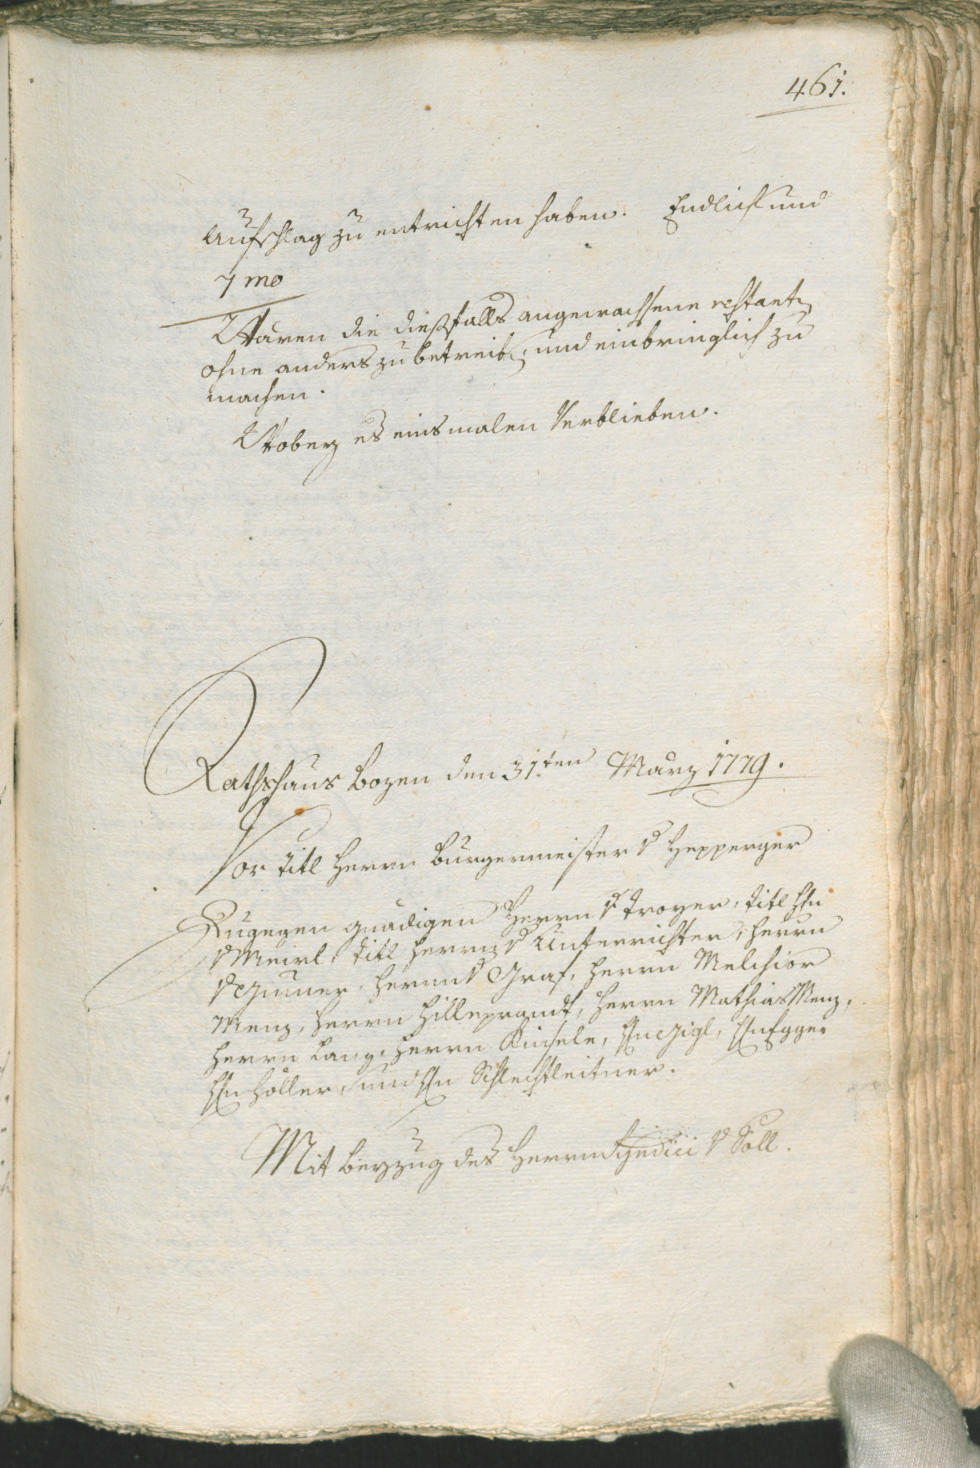 461.
Aufschlag zu entrichten haben. Endlich und
7mo
Wären die dießfalls angewachsene restanten
ohne anders zu betreiben, und einbringlich zu
machen.
Wobey es einsmalen Verblieben.
Rathshaus Bozen den 31.ten März 1779.
Vor titl Herrn Burgermeister v Hepperger
Zugegen gnädigen Herrn v Troyer, titl Hn
v Menz, titl Herrn v Unterrichter, Herrn
v Gumer, Herrn v Graf, Herrn Melchior
Menz, Herrn Hilleprandt, Herrn Mathias Menz,
Herrn Lang, Herrn Kinsele, Hn Zigl, Hn Egger
Hn Holler, und Hn Schlechtleitner.
Mit beyzug des Herrn Syndici v Söll.